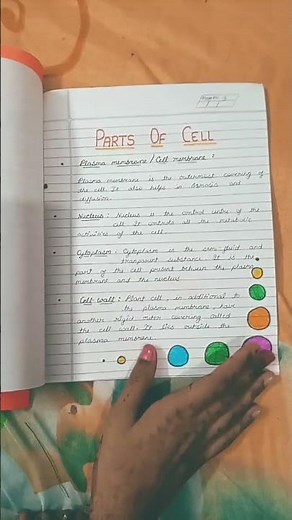 PARTS OF CELL
Plasma membrane / Cell membrane :
Plasma membrane is the outermost covering of
the cell. It also helps in Osmosis and
diffusion.
Nucleus : Nucleus is the control centre of the
cell. It controls all the metabolic
activities of the cell.
Cytoplasm : Cytoplasm is the semi-fluid and
transparent substance. It is the
part of the cell present between the plasma
membrane and the nucleus
Cell wall : Plant cell, in additional to
the plasma membrane, have
another rigid outer covering called
the cell wall. It lies outside the
plasma membrane.